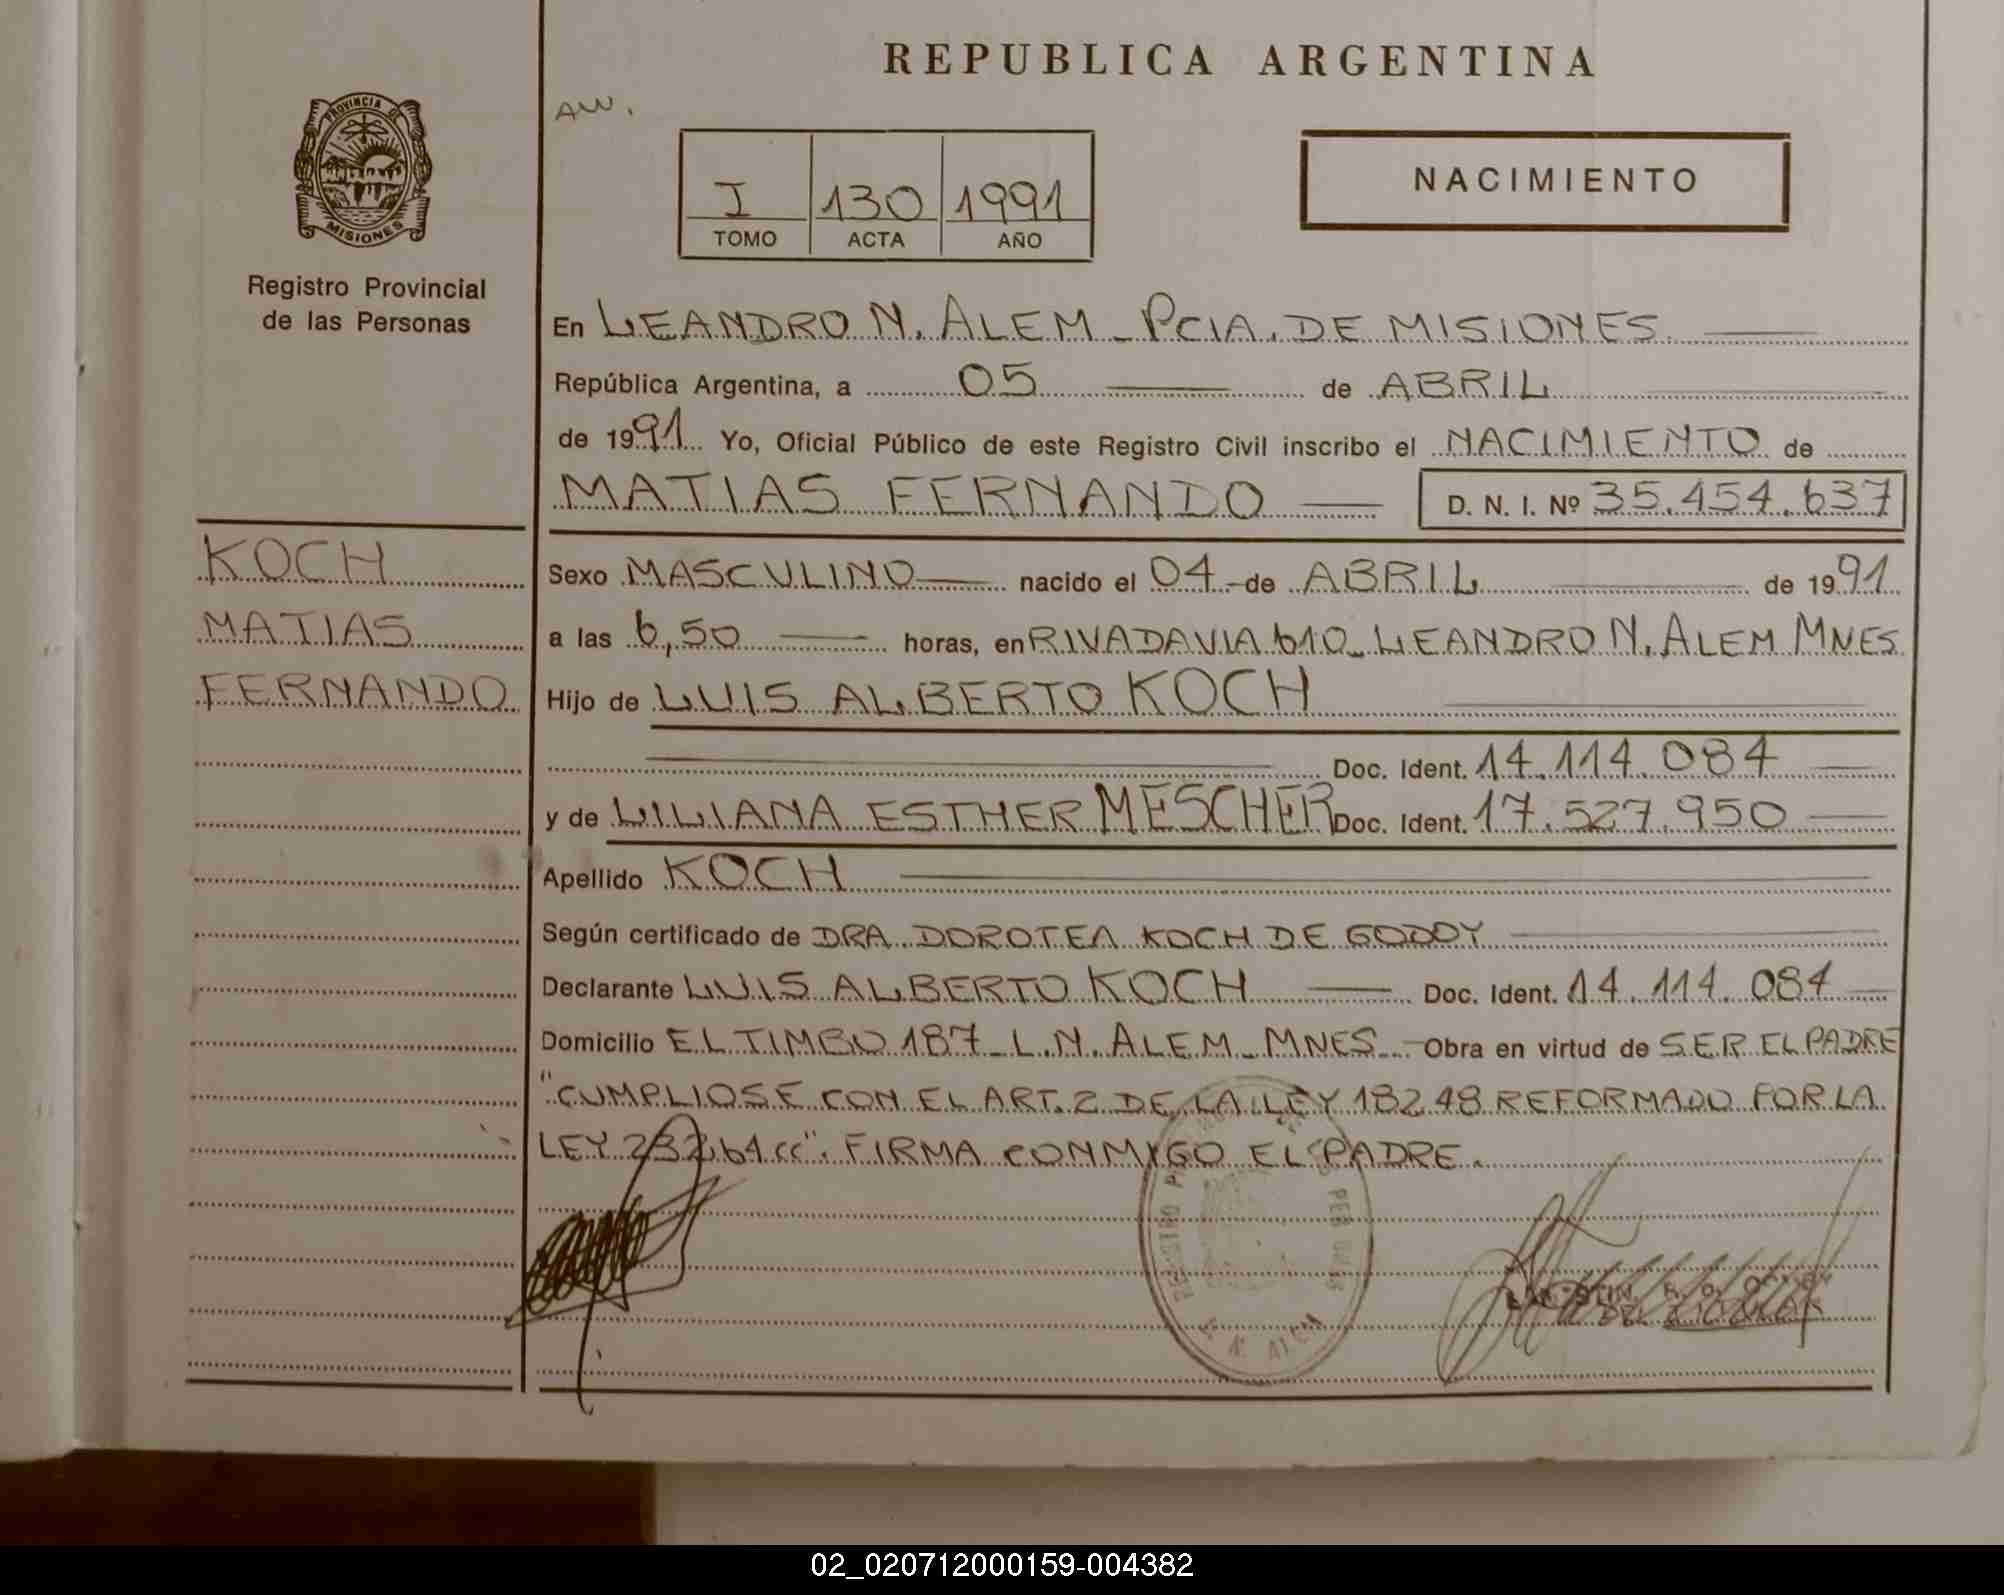 REPUBLICA ARGENTINA
PROVINCIA DE
MISIONES
Registro Provincial
de las Personas
I 130 1991
TOMO ACTA AÑO
NACIMIENTO
En LEANDRO N. ALEM - PCIA. DE MISIONES.
República Argentina, a 05 de ABRIL
de 1991 Yo, Oficial Público de este Registro Civil inscribo el NACIMIENTO de
MATIAS FERNANDO D. N. I. Nº 35.454.637
KOCH
MATIAS
FERNANDO
Sexo MASCULINO nacido el 04 de ABRIL de 1991
a las 6,50 horas, en RIVADAVIA 610_LEANDRO N. ALEM MNES
Hijo de LUIS ALBERTO KOCH
Doc. Ident. 14.114.084
y de LILIANA ESTHER MESCHER Doc. Ident. 17.527.950
Apellido KOCH
Según certificado de DRA. DOROTEA KOCH DE GODOY
Declarante LUIS ALBERTO KOCH Doc. Ident. 14.114.084
Domicilio EL TIMBO 187_L.N. ALEM_MNES_ Obra en virtud de SER EL PADRE
"CUMPLIOSE CON EL ART. 2 DE LA LEY 18248 REFORMADO POR LA
LEY 23264 cc". FIRMA CONMIGO EL PADRE.
02_020712000159-004382